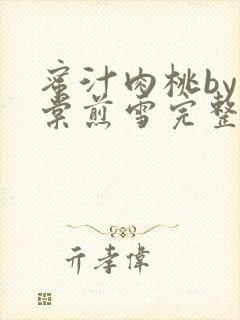 蜜汁肉桃by
棠煎雪完整
亓孝偉